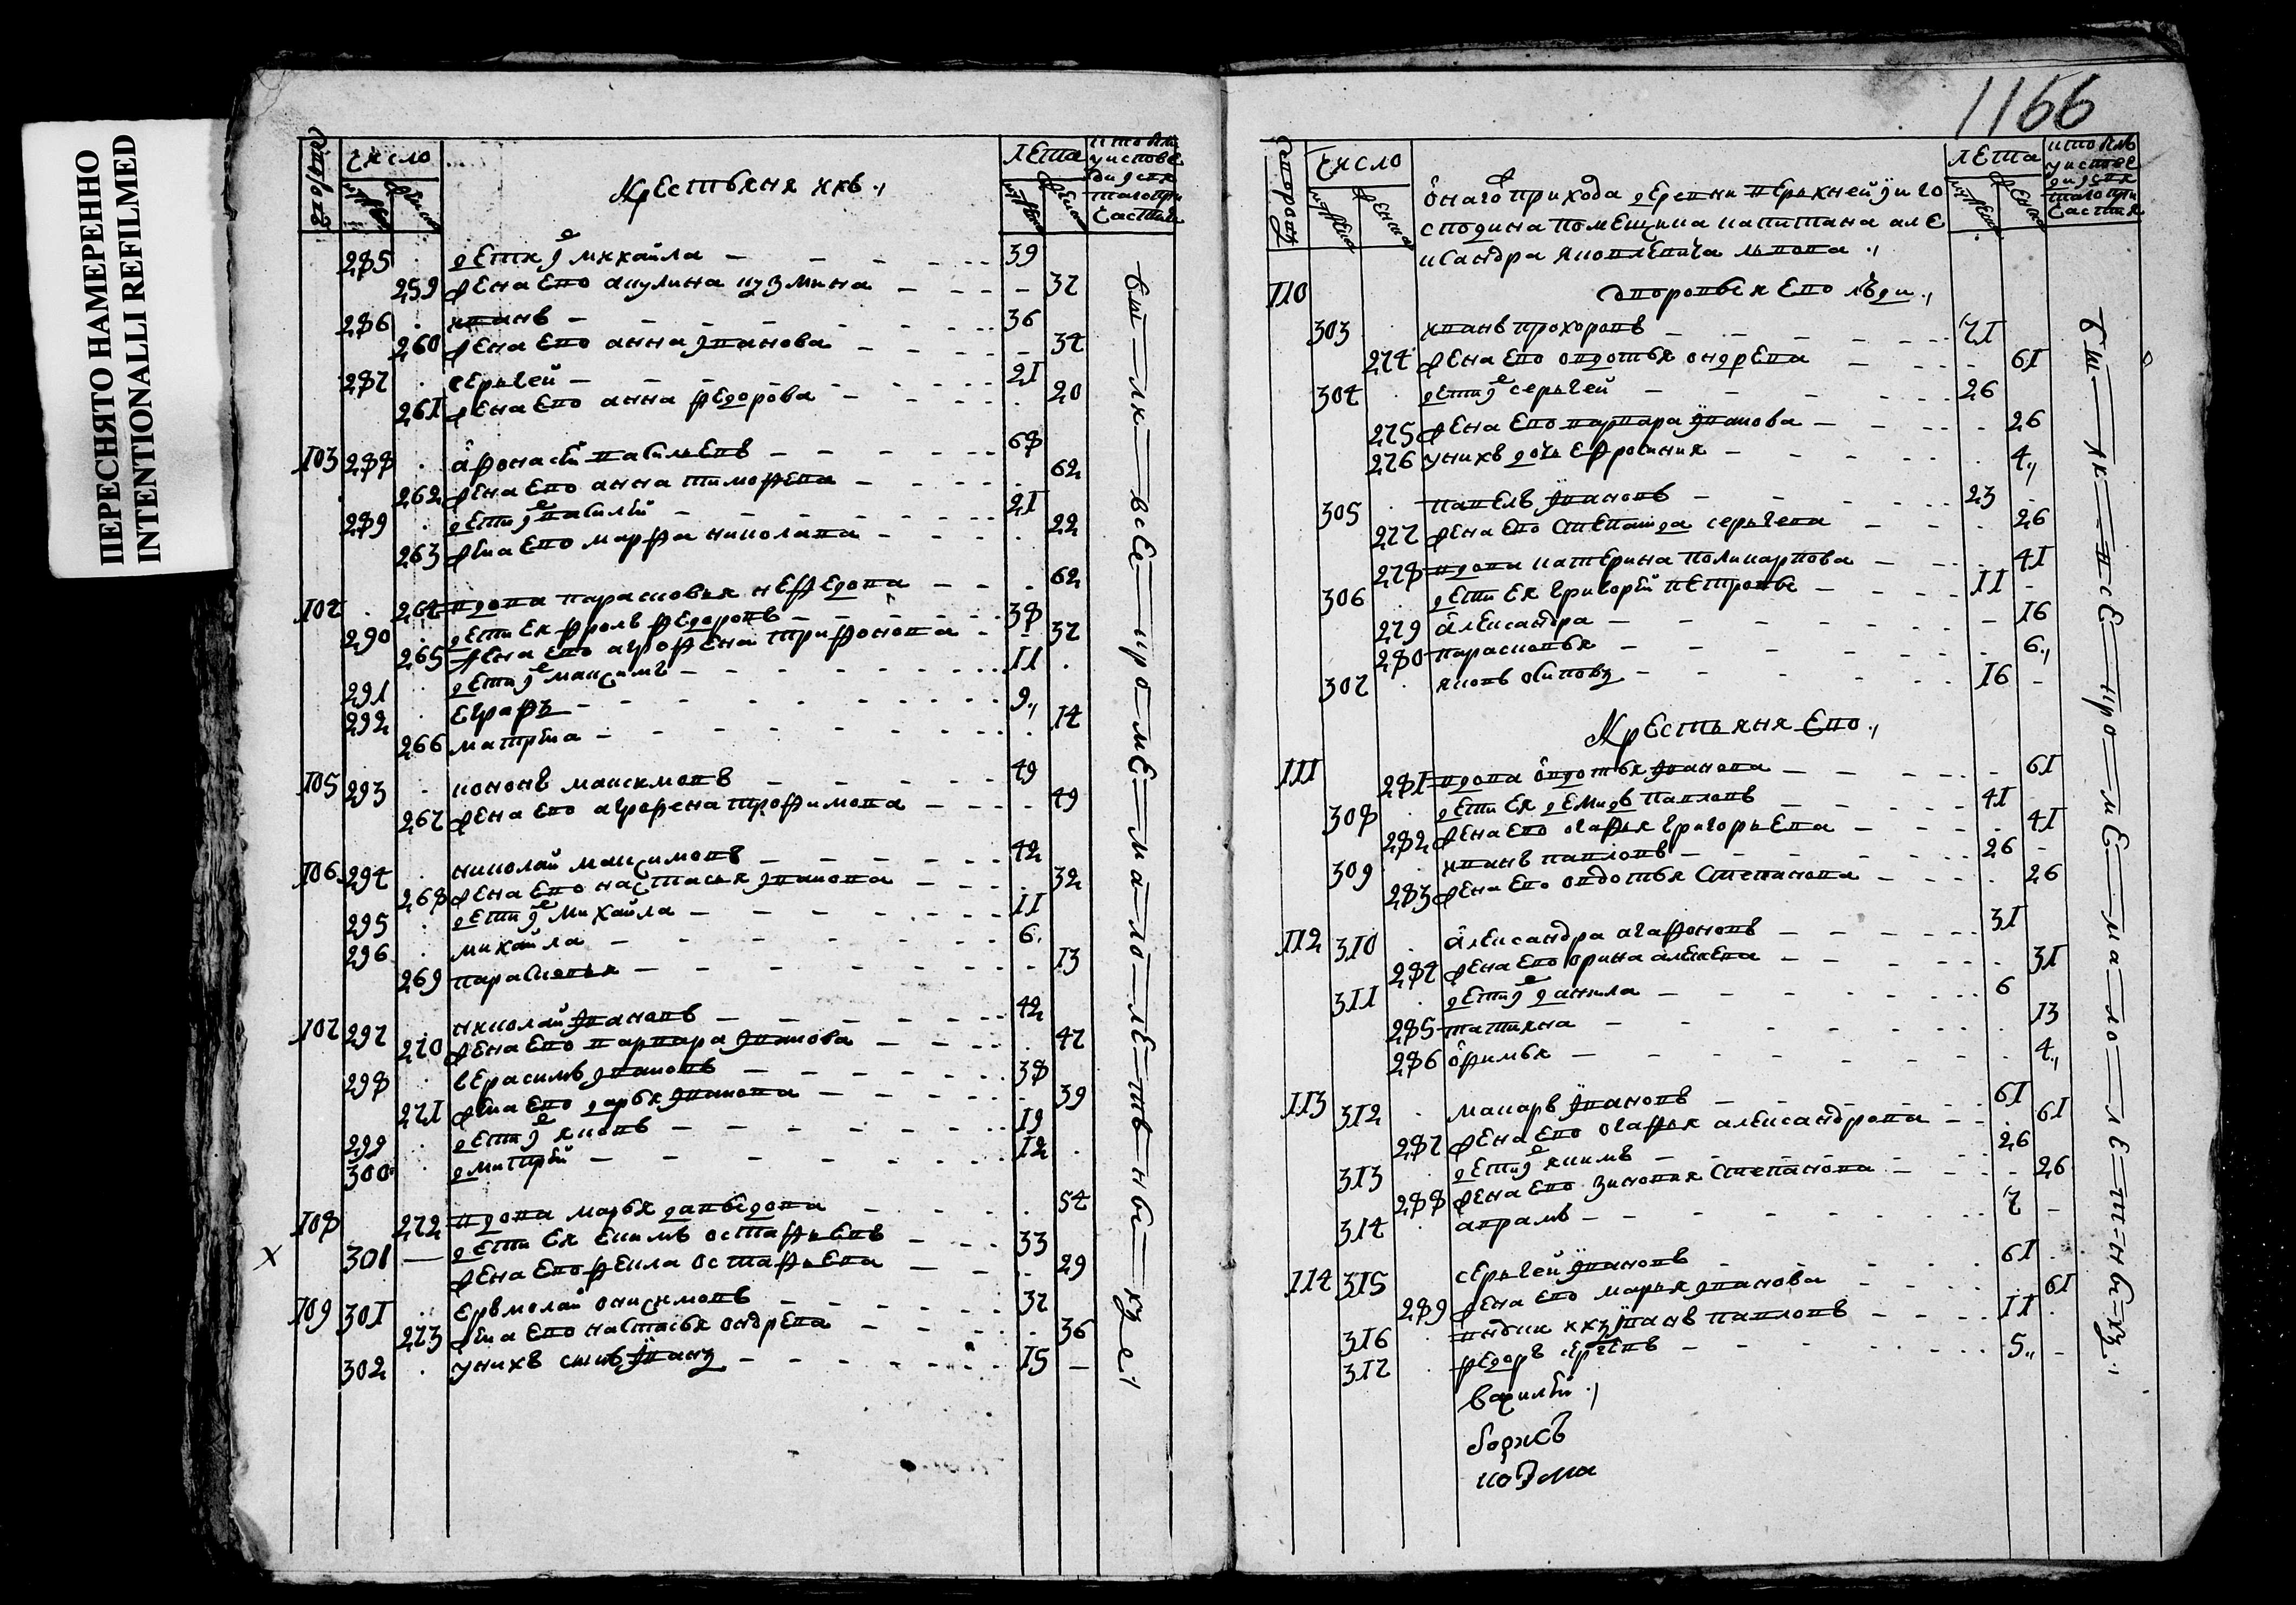 ПЕРЕСНЯТО НАМЕРЕННО
INTENTIONALLI REFILMED
число
лета
Крестьяня ихъ
285 дети ево михайла 39
259 жена ево акулина кузмина 37
286 иванъ 36
260 жена ево анна иванова 34
287 сергей 21
261 жена ево анна федорова 20
103 288 афонасей васильевъ 68
262 жена ево анна тимофева 62
289 дети ево василей 21
263 жена ево марфа николава 22
104 264 вдова парасковья нефедова 62
290 дети ея фролъ федоровъ 38
265 жена ево агрофена трифонова 37
291 дети ево максимъ 11
292 еграфъ 9
266 матрена 14
105 293 кононъ максимовъ 49
267 жена ево агрофена трофимова 49
106 294 николай максимовъ 42
268 жена ево настасья иванова 32
295 дети ево михайла 11
296 михайла 6
269 парасковья 13
107 297 николай ивановъ 42
270 жена ево варвара иванова 47
298 герасимъ ивановъ 38
271 жена ево дарья иванова 39
299 дети ево яковъ 19
300 дмитрей 12
108 272 вдова марья давыдова 54
301 дети ея екимъ остафьевъ 33
жена ево фекла остафьева 29
109 301 ермолай онисимовъ 37
273 жена ево настасья ондрева 36
302 у нихъ сынъ иванъ 15
били все кроме малолетныхъ
1166
число
лета
онаго прихода деревни верхней уи го
сподина помещика капитана але
ксандра яковлевича львова
110 дворовыя ево люди
303 иванъ прохоровъ 71
274 жена ево овдотья ондрева 61
304 дети ево сергей 26
275 жена ево варвара иванова 26
276 у нихъ дочь ефросиния 4
305 павелъ ивановъ 23
277 жена ево степанида сергева 26
278 вдова катерина поликарпова 41
306 дети ея григорей петровъ 11
279 александра 16
280 парасковья 6
307 яковъ осиповъ 16
Крестьяня ево
111 281 вдова овдотья иванова 61
308 дети ея демидъ павловъ 41
282 жена ево огафья григорьева 41
309 иванъ павловъ 26
283 жена ево овдотья степанова 26
112 310 александра агафоновъ 31
284 жена ево орина алексева 31
311 дети ево данила 6
285 татияна 13
286 офимья 4
113 312 макаръ ивановъ 61
287 жена ево огафья александрова 61
313 дети ево якимъ 26
288 жена ево зиновия степанова 26
314 аврамъ 7
114 315 сергей ивановъ 61
289 жена ево марья иванова 61
316 внукъ ихъ иванъ павловъ 11
317 федоръ сергевъ 5
борисъ
козма
били все кроме малолетныхъ